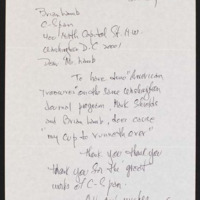 Brian Lamb
C-Span
400 North Capitol St. N.W.
Washington D.C 20001
Dear Mr Lamb
To have two "American
treasures" on the same Washington
Journal program, Mark Shields
and Brian Lamb, does cause
"my cup to runneth over"
Thank you thank you
thank you for the great
work at C-Span.